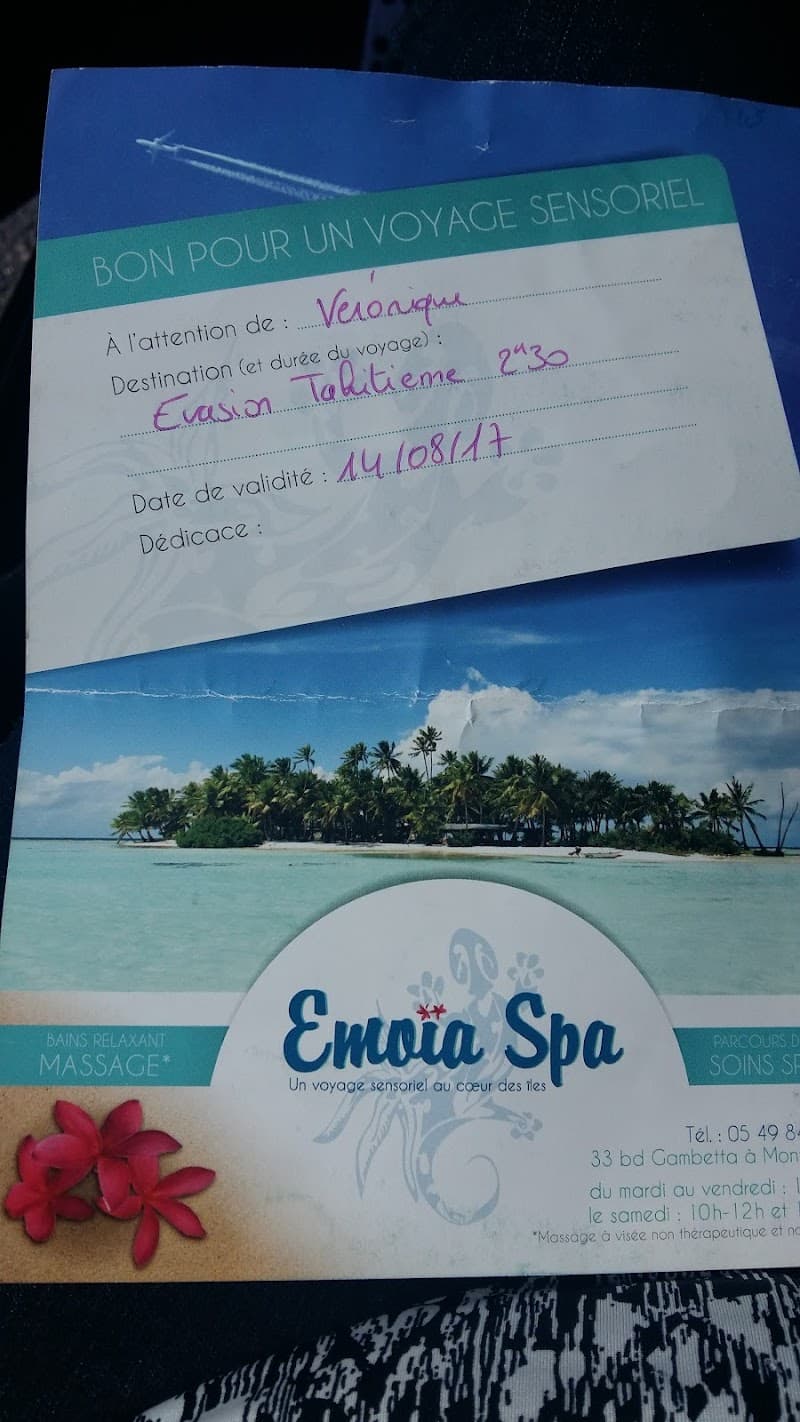 BON POUR UN VOYAGE SENSORIEL
À l'attention de : Verónique
Destination (et durée du voyage) :
Evasion Tahitieme 2h30
Date de validité : 14/08/17
Dédicace :
Emoïa Spa
Un voyage sensoriel au cœur des îles
BAINS RELAXANT
MASSAGE*
PARCOURS D
SOINS SP
Tél. : 05 49 84
33 bd Gambetta à Mon
du mardi au vendredi : 1
le samedi : 10h-12h et 1
*Massage à visée non thérapeutique et no